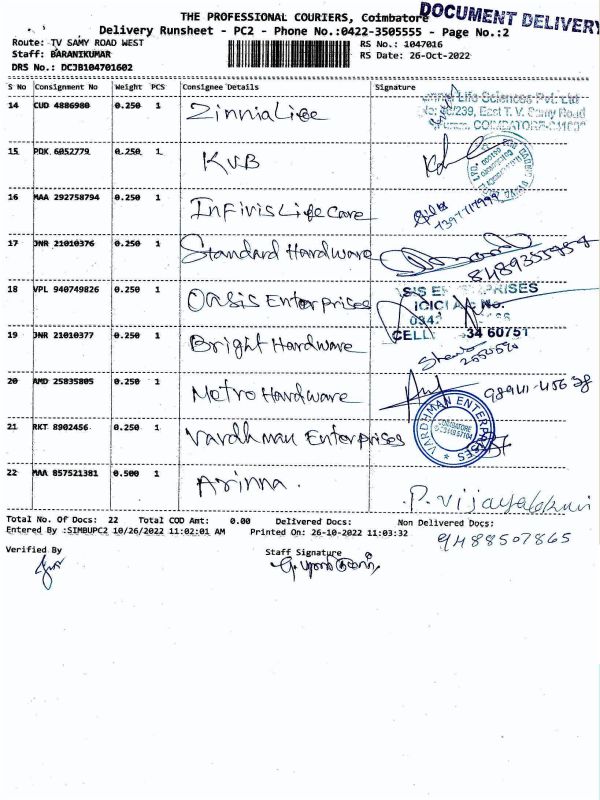 THE PROFESSIONAL COURIERS, Coimbatore
DOCUMENT DELIVERY
Delivery Runsheet - PC2 - Phone No.:0422-3505555 - Page No.:2
Route: TV SAMY ROAD WEST
RS No.: 1047016
Staff: BARANIKUMAR
RS Date: 26-Oct-2022
DRS No.: DCJB104701602
S No Consignment No Weight PCS Consignee Details Signature
14 CUD 4886980 0.250 1 Zinnia Life
Life Sciences Pvt. Ltd
239, East T. V. Samy Road
15 PDK 6052779 0.250 1 KVB
16 MAA 292758794 0.250 1 Infivis Life Care
17 JNR 21010376 0.250 1 Standard Hardware
8489355954
18 VPL 940749826 0.250 1 Oasis Enterprises
ICICI A/c No.
CELL 34 60751
19 JNR 21010377 0.250 1 Bright Hardware
20 AMD 25835805 0.250 1 Metro Hardware
21 RKT 8902456 0.250 1 Vardhman Enterprises
VARDHMAN ENTERPRISES
COIMBATORE
22 MAA 857521381 0.500 1 Arinna.
P. Vijayalakshmi
Total No. Of Docs: 22 Total COD Amt: 0.00 Delivered Docs: Non Delivered Docs:
Entered By :SIMBUPC2 10/26/2022 11:02:01 AM Printed On: 26-10-2022 11:03:32
9488507865
Verified By
Staff Signature